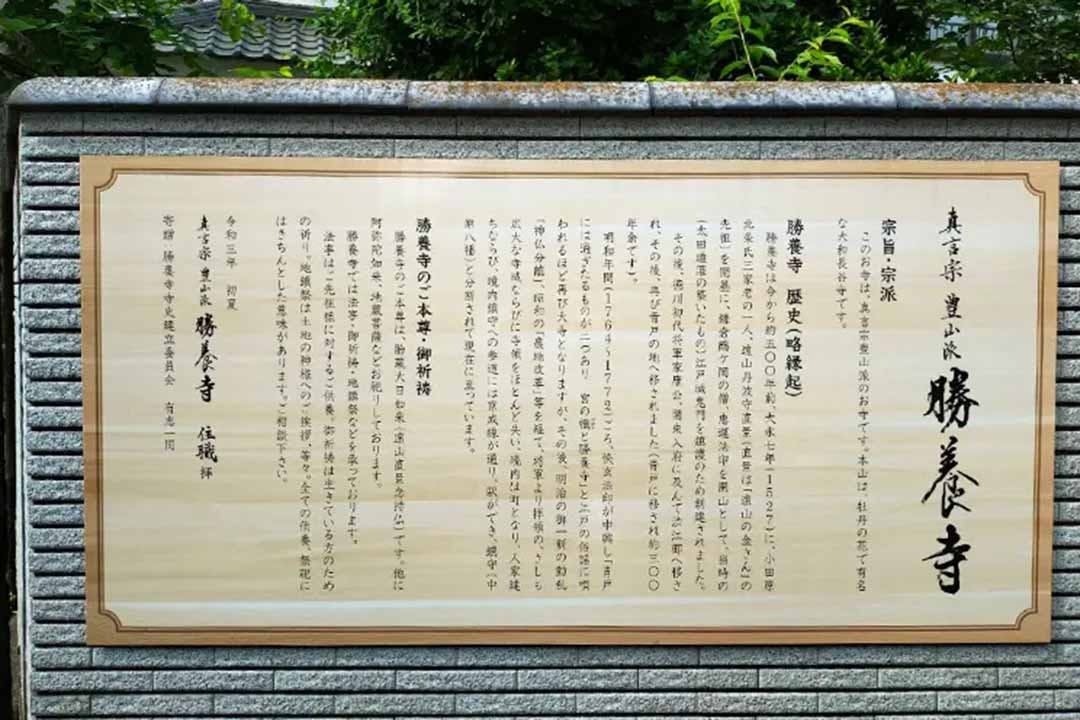 真言宗 豊山派 勝養寺
宗旨・宗派
このお寺は、真言宗豊山派のお寺です。本山は、牡丹の花で有名
な大和長谷寺です。
勝養寺 歴史(略縁起)
勝養寺は今から約五〇〇年前(大永七年・1527)に、小田原
北条氏三家老の一人、遠山丹波守直景(直景は「遠山の金さん」の
先祖)を開基に、鎌倉鶴ケ岡の僧、恵運法印を開山として、当時の
(太田道灌の築いたもの)江戸城鬼門を鎮護のため創建されました。
その後、徳川初代将軍家康公、関東入府に及んで渋江郷へ移さ
れ、その後、再び青戸の地へ移されました(青戸に移され約三〇〇
年余です)。
明和年間(1764~1772)ごろ、法印が中興し「青戸
には過ぎたるものが二つあり、宮の幟と勝養寺」と江戸の俗謡に唄
われるほど再び大寺となりますが、その後、明治の御一新の勅礼
「神仏分離」、昭和の「農地改革」等を経て、将軍より拝領の、さしも
広大な寺域ならびに寺領をほとんど失い、境内は町となり、人家建
ちならび、境内鎮守への参道には京成線が通り、駅ができ、鎮守(中
原八幡)と分断されて現在に至っています。
勝養寺のご本尊・御祈祷
勝養寺のご本尊は、胎蔵大日如来(遠山直景念持仏)です。他に
阿弥陀如来、地蔵菩薩などお祀りしております。
勝養寺では法事・御祈祷・地鎮祭などを承っております。
法事は、ご先祖様に対するご供養、御祈祷は生きている方のため
の祈り、地鎮祭は土地の神様へのご挨拶、等々。全ての供養、祭祀に
はきちんとした意味があります。ご相談下さい。
令和三年 初夏
真言宗 豊山派 勝養寺 住職 拝
寄贈・勝養寺寺史建立委員会 有志一同